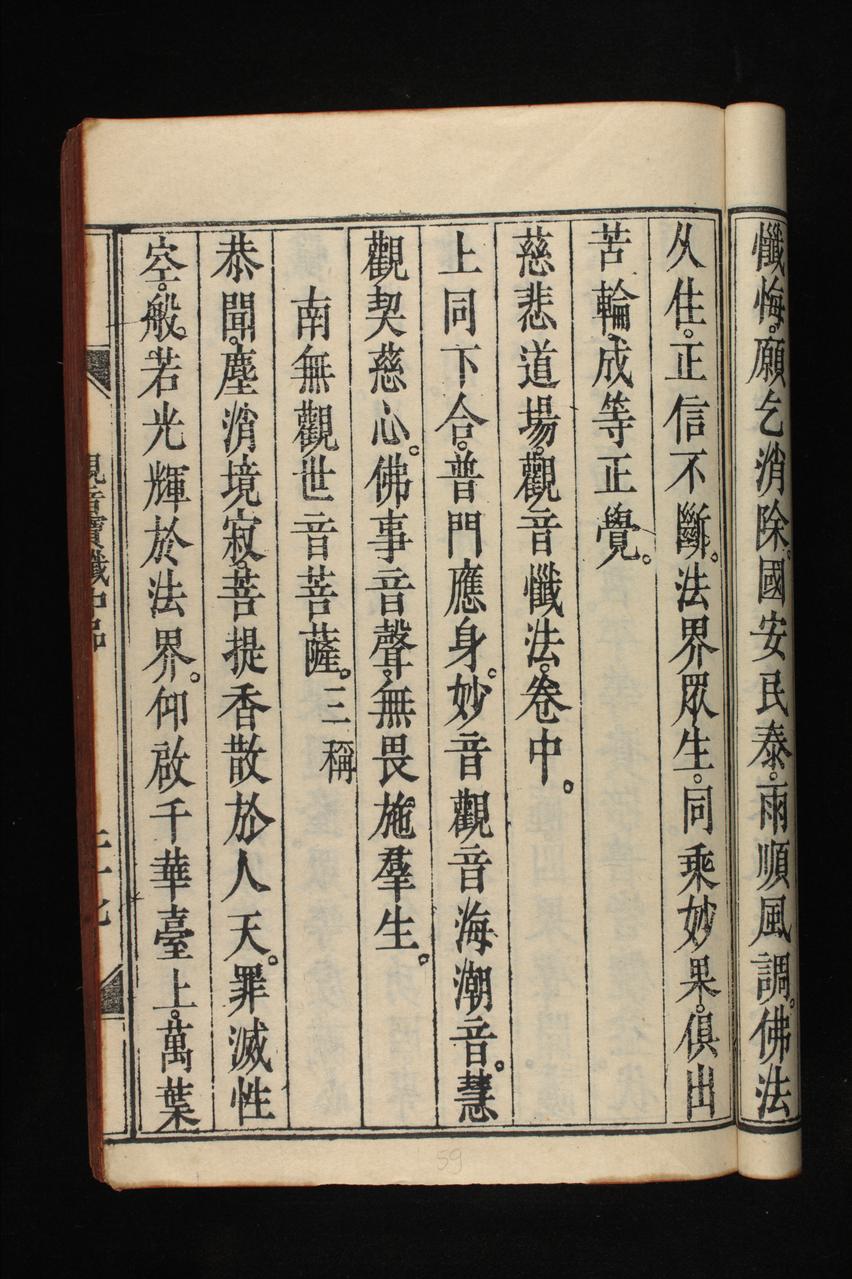 懺悔。願乞消除。國安民泰。雨順風調。佛法
久住。正信不斷。法界眾生。同乘妙果。俱出
苦輪。成等正覺。
慈悲道場。觀音懺法。卷中。
上同下合。普門應身。妙音觀音海潮音。慧
觀契慈心。佛事音聲。無畏施羣生。
南無觀世音菩薩。三稱
恭聞。塵消境寂。菩提香散於人天。罪滅性
空。般若光輝於法界。仰啟千華臺上。萬葉
觀音寶懺中品
59